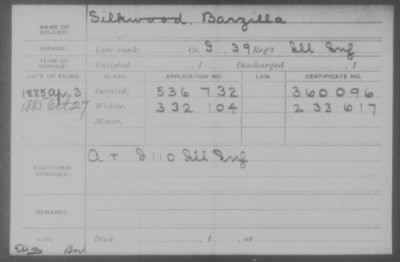 NAME OF SOLDIER: Silkwood, Barzilla
SERVICE: Late rank, Co. I, 39 Reg't Ill Inf
TERM OF SERVICE: Enlisted , 1 Discharged , 1
DATE OF FILING. CLASS. APPLICATION NO. LAW. CERTIFICATE NO.
1885 Apr. 3 Invalid, 536 732 360 096
1885 Oct 27 Widow, 332 104 233 617
Minor,
ADDITIONAL SERVICES: I 110 Ill Inf
REMARKS:
Died , 1 , at